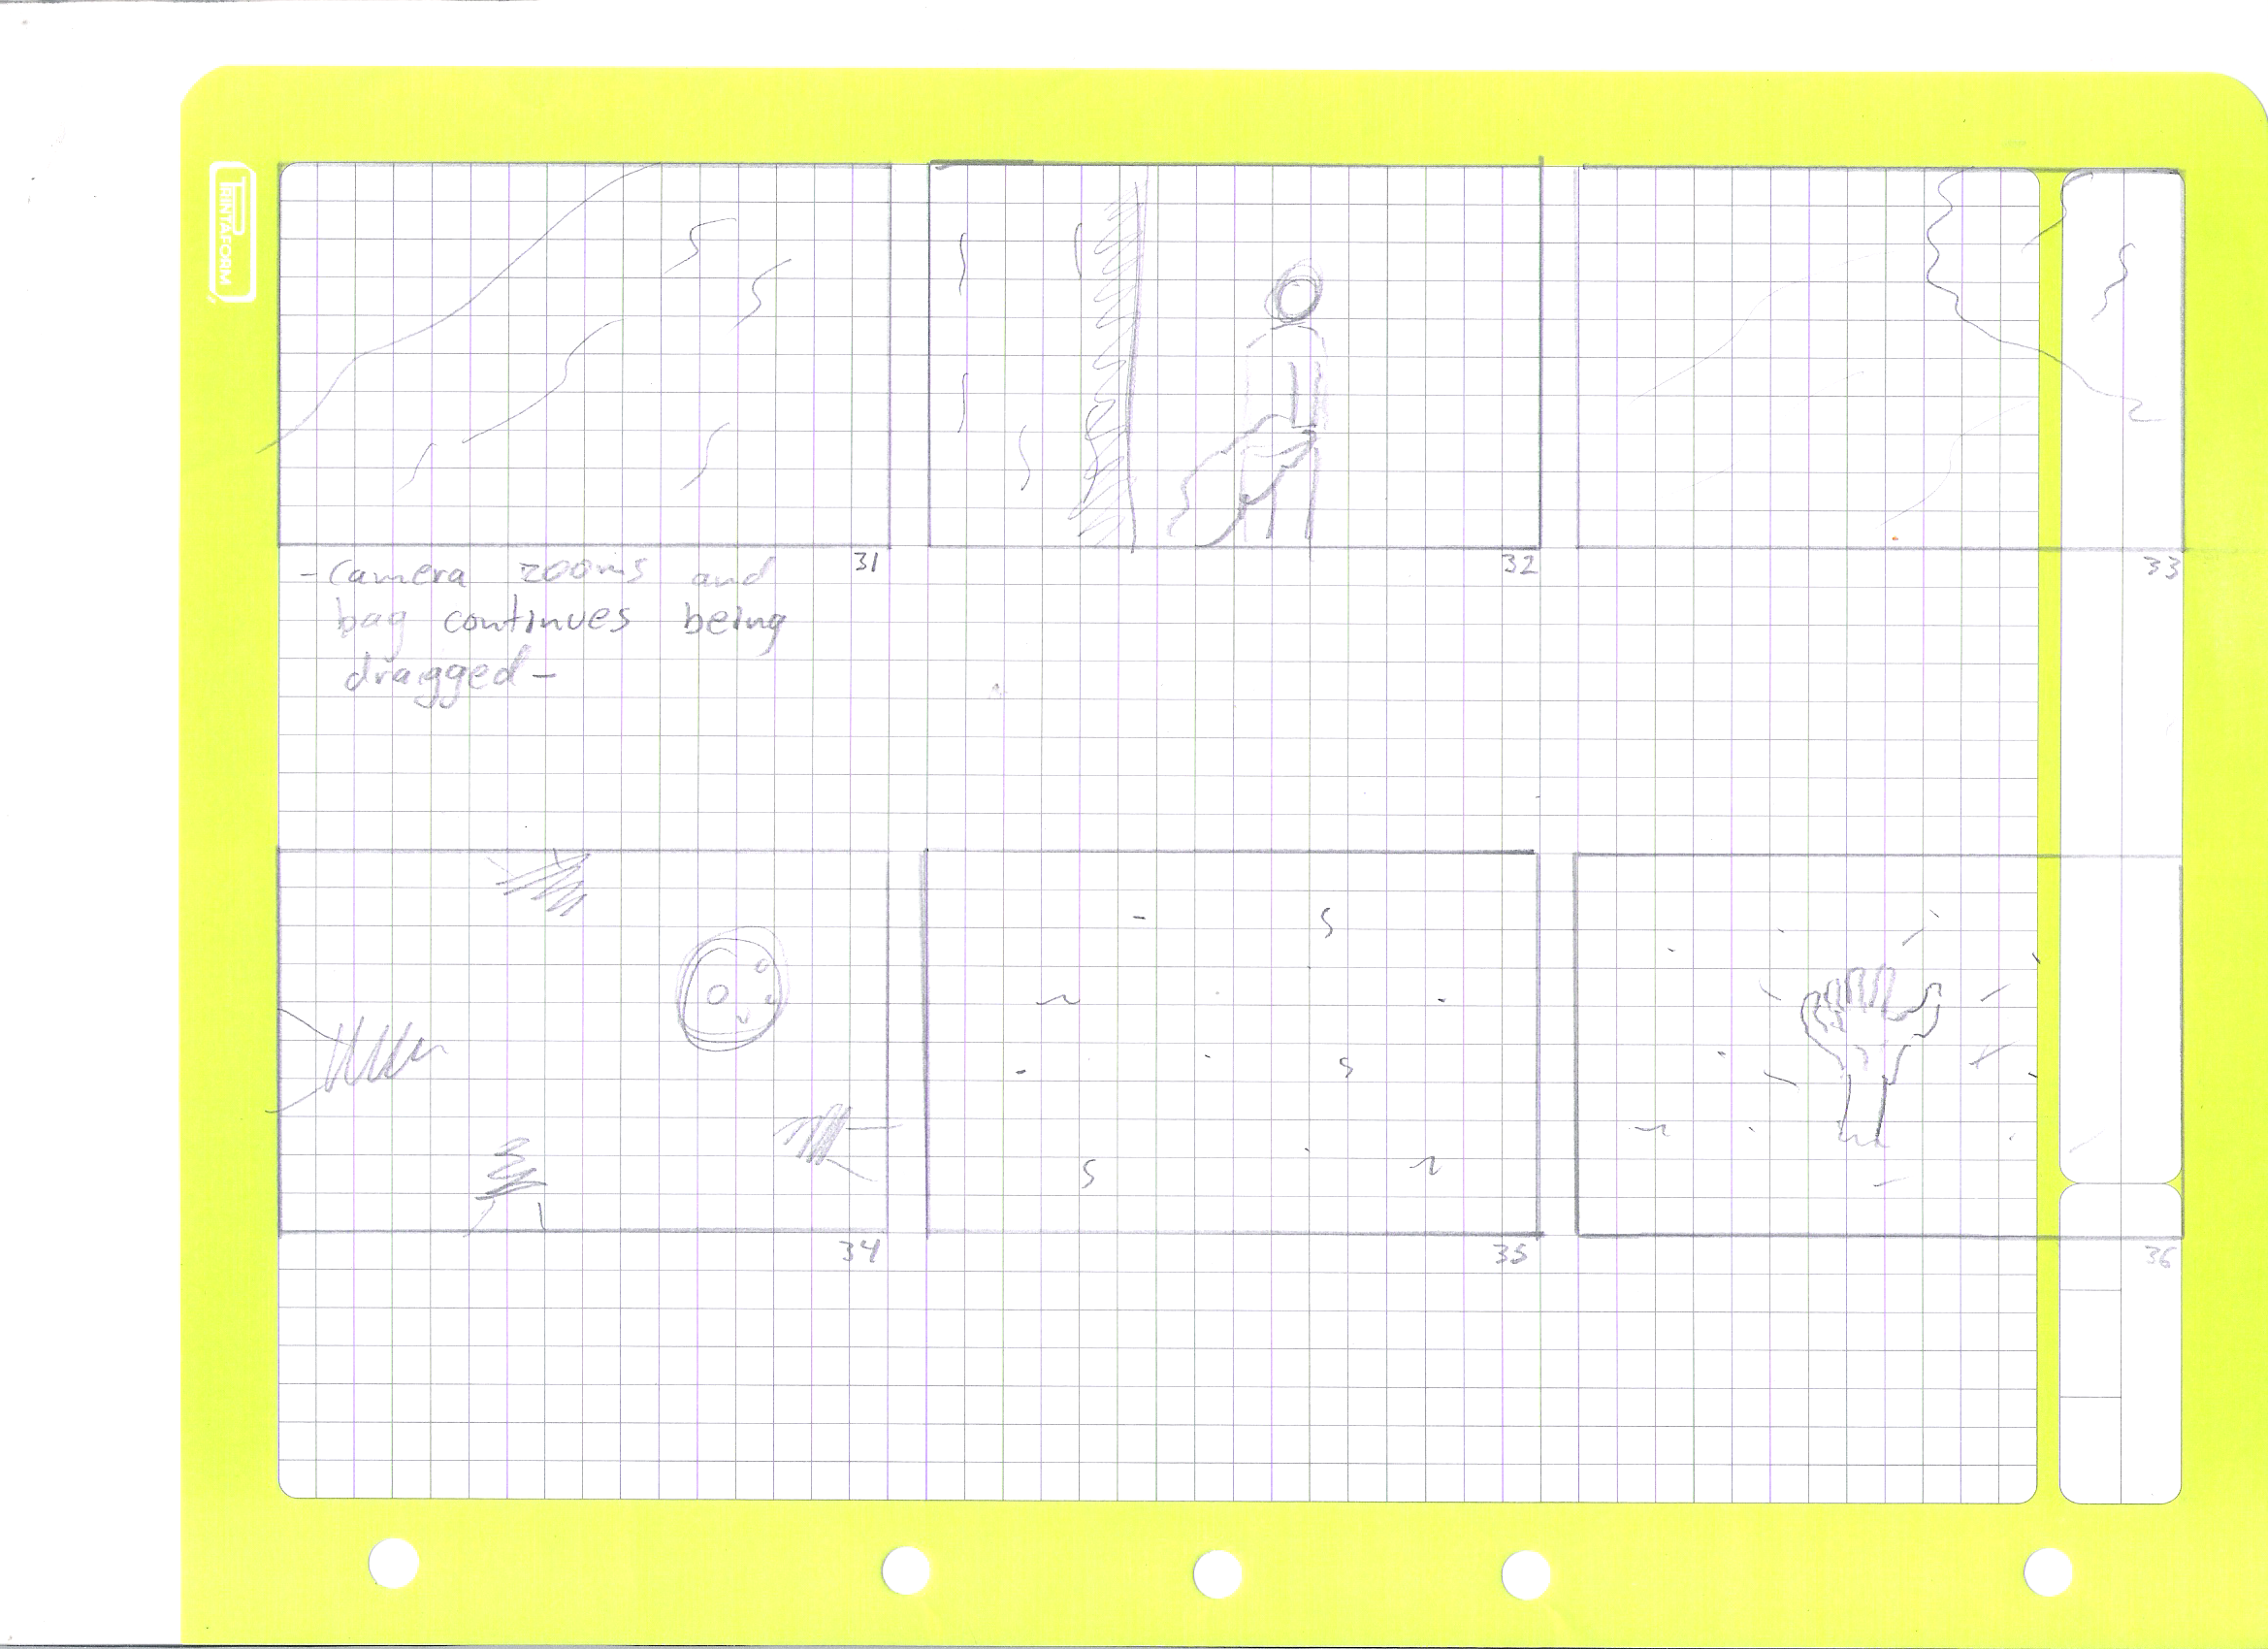 PRINTAFORM
31
32
33
-Camera zooms and
bag continues being
dragged-
34
35
36